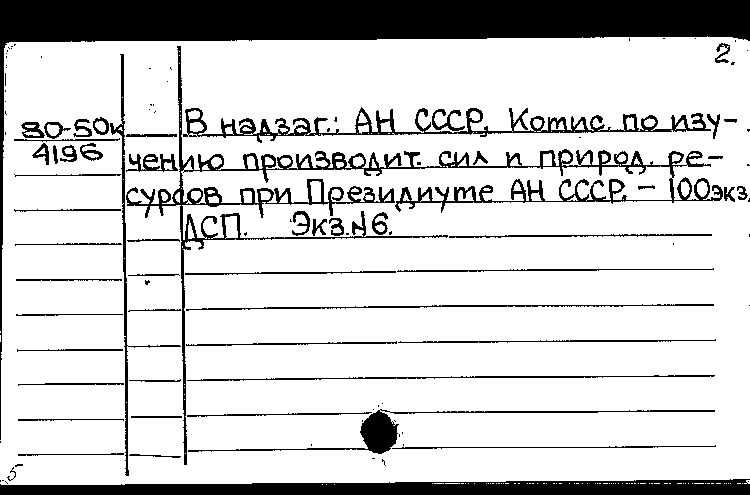 2.
80-50к В надзаг.: АН СССР, Комис. по изу-
4196 чению производит. сил и природ. ре-
сурсов при Президиуме АН СССР. – 100 экз.
ДСП. Экз. № 6.
5